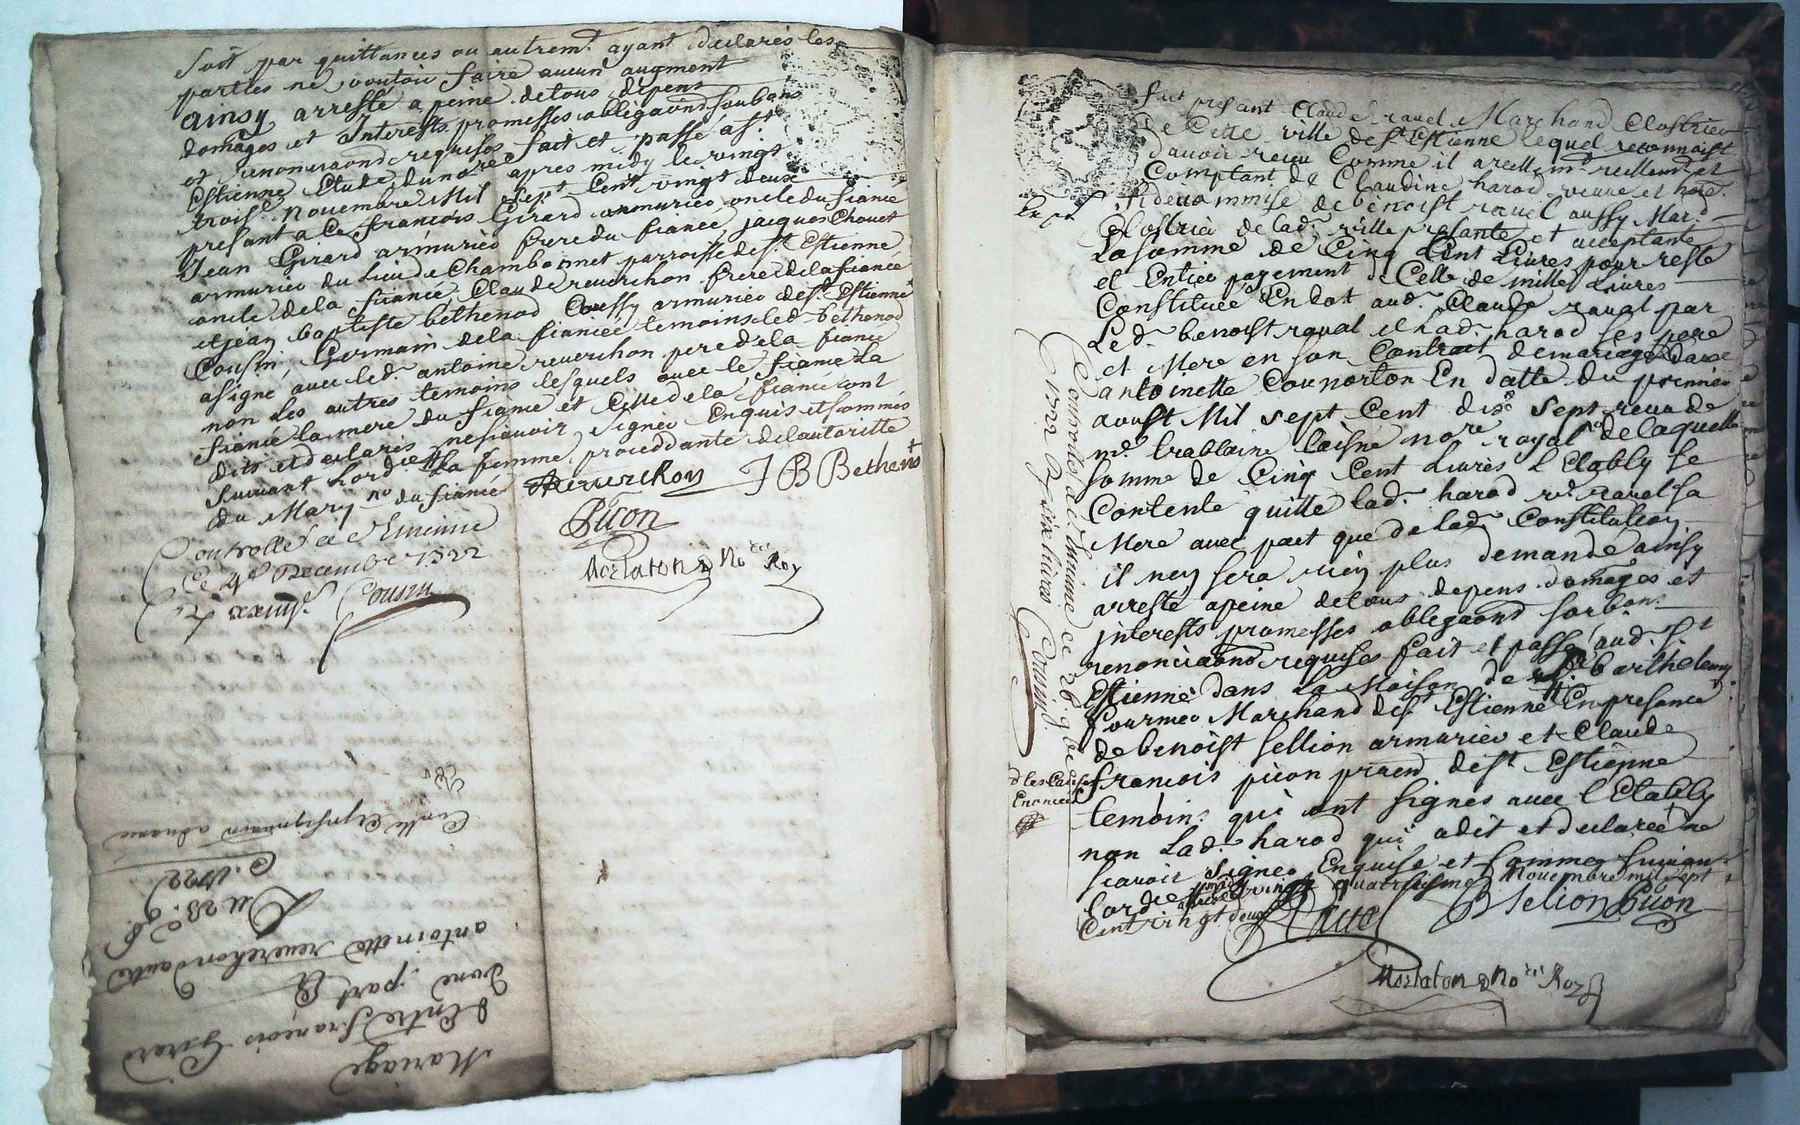 soit par quittances ou autremt. ayant declarés les
parties ne vouloir faire aucun augment
ainsy arresté a peine de tous depens
domages et Interests promesses obligaons soubons
et renonciaons requises fait et passé a st.
Estienne Etude du nore apres midy le vingt
trois novembre Mil sept cent vingt deux
presant a ce francois Girard armurier oncle du fiancé
Jean Girard armurier frere du fiancé, jacques Chouet
armurier du lieu de Chambonnet parroisse de st. Estienne
oncle de la fiancé Claude reverchon frere de la fiancé
et jean baptiste bethenod aussy armurier de st. Estienne
Cousin Germain de la fiancée temoins led. bethenod
a signé avec led. antoine reverchon pere de la fiancé
non les autres temoins lesquels avec le fiancé la
fiancé la mere du fiancé et Celle de la fiancé ont
dits et declarés ne scavoir signer Enquis et sommés
suivant Lordce la femme, proceddante de lautoritte
du Mary no du fiancé Areverchon J B Bethenod
Picon
Controllé a st Etienne
Ce 4e Decembre 1722
Cousin
Morlaton No re Roy
C. 1722
Du 23. 9.
antoinette reverchon dautre
dune part Et
dEntre francois Girard
Mariage
fut presant Claude ravel Marchand Clostrier
de Cette ville de st Estienne lequel reconnoist
davoir receu Comme il a reellemt. reellemt et
Comptant de Claudine harod veuve et here.
fideicommise de benoist ravel aussy Mard.
Clostrier de lad. ville presante et acceptante
La somme de Cinq Cent Livres pour reste
et Entier payement de Celle de mille Livres
Constituée En dot aud. Claude ravel par
Led. benoist ravel et lad. harod ses pere
et Mere en son Contrat de mariage avec
antoinette Cournorton En datte du premier
aoust Mil sept Cent dix sept receu de
me. trablaine laisné nore royal de laquelle
somme de Cinq Cent Livres l Etably se
Contente quitte lad. harod ve. ravel sa
Mere avec pact que de lad. Constitution
il ney sera riey plus demandé ainsy
arresté a peine de tous depens domages et
jnterests promesses obligaons soubons
renonciaons requises fait et passé aud. st
Estienne dans la Maison de sr. barthelemy
fournier Marchand de st Estienne En presance
de benoist sellion armurier et Claude
francois picon praen de st Estienne
temoins qui ont signés avec l Etably
non Lad. harod qui a dit et declarée ne
scavoir signer Enquise et sommée suivan.
lordce vingt quatriesme Novembre mil sept
Cent vingt deux
Ravel B Selion Picon
Morlaton No re Roy
Controllé a st Etienne ce 26 9bre
1722 R six livres Cousin